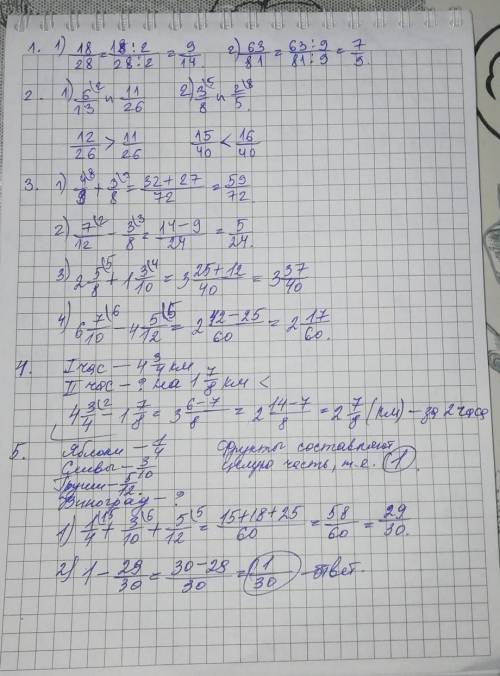 1. 1) 18/28 = 18:2/28:2 = 9/14 2) 63/81 = 63:9/81:9 = 7/9.
2. 1) 6\2/13 и 11/26 2) 3\5/8 и 2\8/5.
12/26 > 11/26 15/40 < 16/40
3. 1) 4\8/9 + 3\9/8 = 32+27/72 = 59/72.
2) 7\2/12 - 3\3/8 = 14-9/24 = 5/24.
3) 2 5\5/8 + 1 3\4/10 = 3 25+12/40 = 3 37/40
4) 6 7\6/10 - 4 5\5/12 = 2 42-25/60 = 2 17/60.
4. I час — 4 3/4 км
II час - ? на 1 7/8 км <
4 3\2/4 - 1 7/8 = 3 6-7/8 = 2 14-7/8 = 2 7/8 (км) - за 2 часа
5. Яблоки - 1/4 Фрукты составляют
Сливы - 3/10 целую часть, т.е. 1.
Груши - 5/12
Виноград - ?
1) 1\15/4 + 3\6/10 + 5\5/12 = 15+18+25/60 = 58/60 = 29/30.
2) 1 - 29/30 = 30-29/30 = 1/30 - ответ.